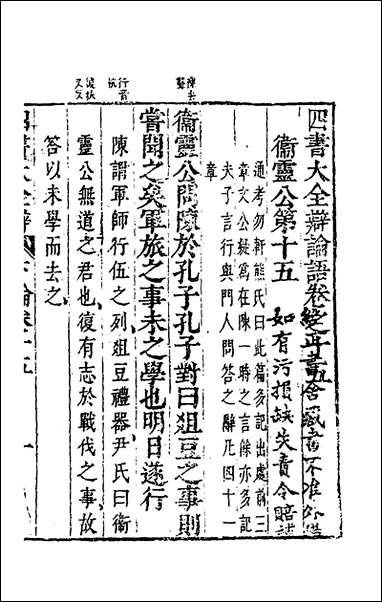 四書大全辯論語卷之十五
衞靈公第十五
如有污損缺失責令賠補
通考勿軒熊氏曰此篇多記出處前三
章文公疑爲在陳一時之言餘亦多記
夫子言行與門人問答之辭凡四十一
章
衞靈公問陳於孔子孔子對曰俎豆之事則
嘗聞之矣軍旅之事未之學也明日遂行
陳謂軍師行伍之列俎豆禮器尹氏曰衞
靈公無道之君也復有志於戰伐之事故
答以未學而去之